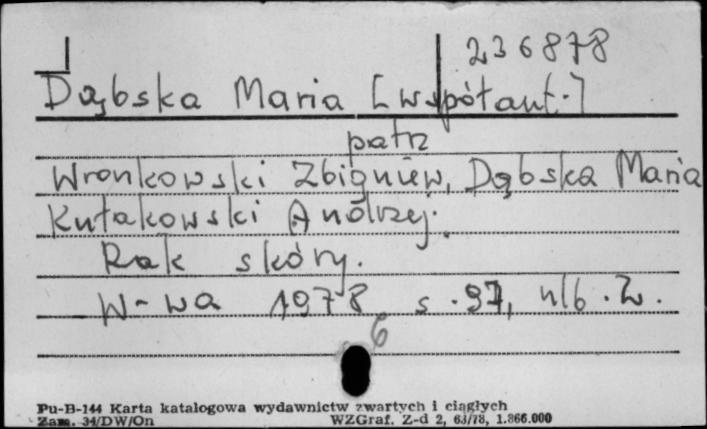 236878
Dąbska Maria [współaut.]
patrz
Wronkowski Zbigniew, Dąbska Maria
Kułakowski Andrzej.
Rak skóry.
W-wa 1978 s. 97, nlb. 2.
6
Pu-B-144 Karta katalogowa wydawnictw zwartych i ciągłych
Zam. 34/DW/On WZGraf. Z-d 2, 63/78, 1.866.000